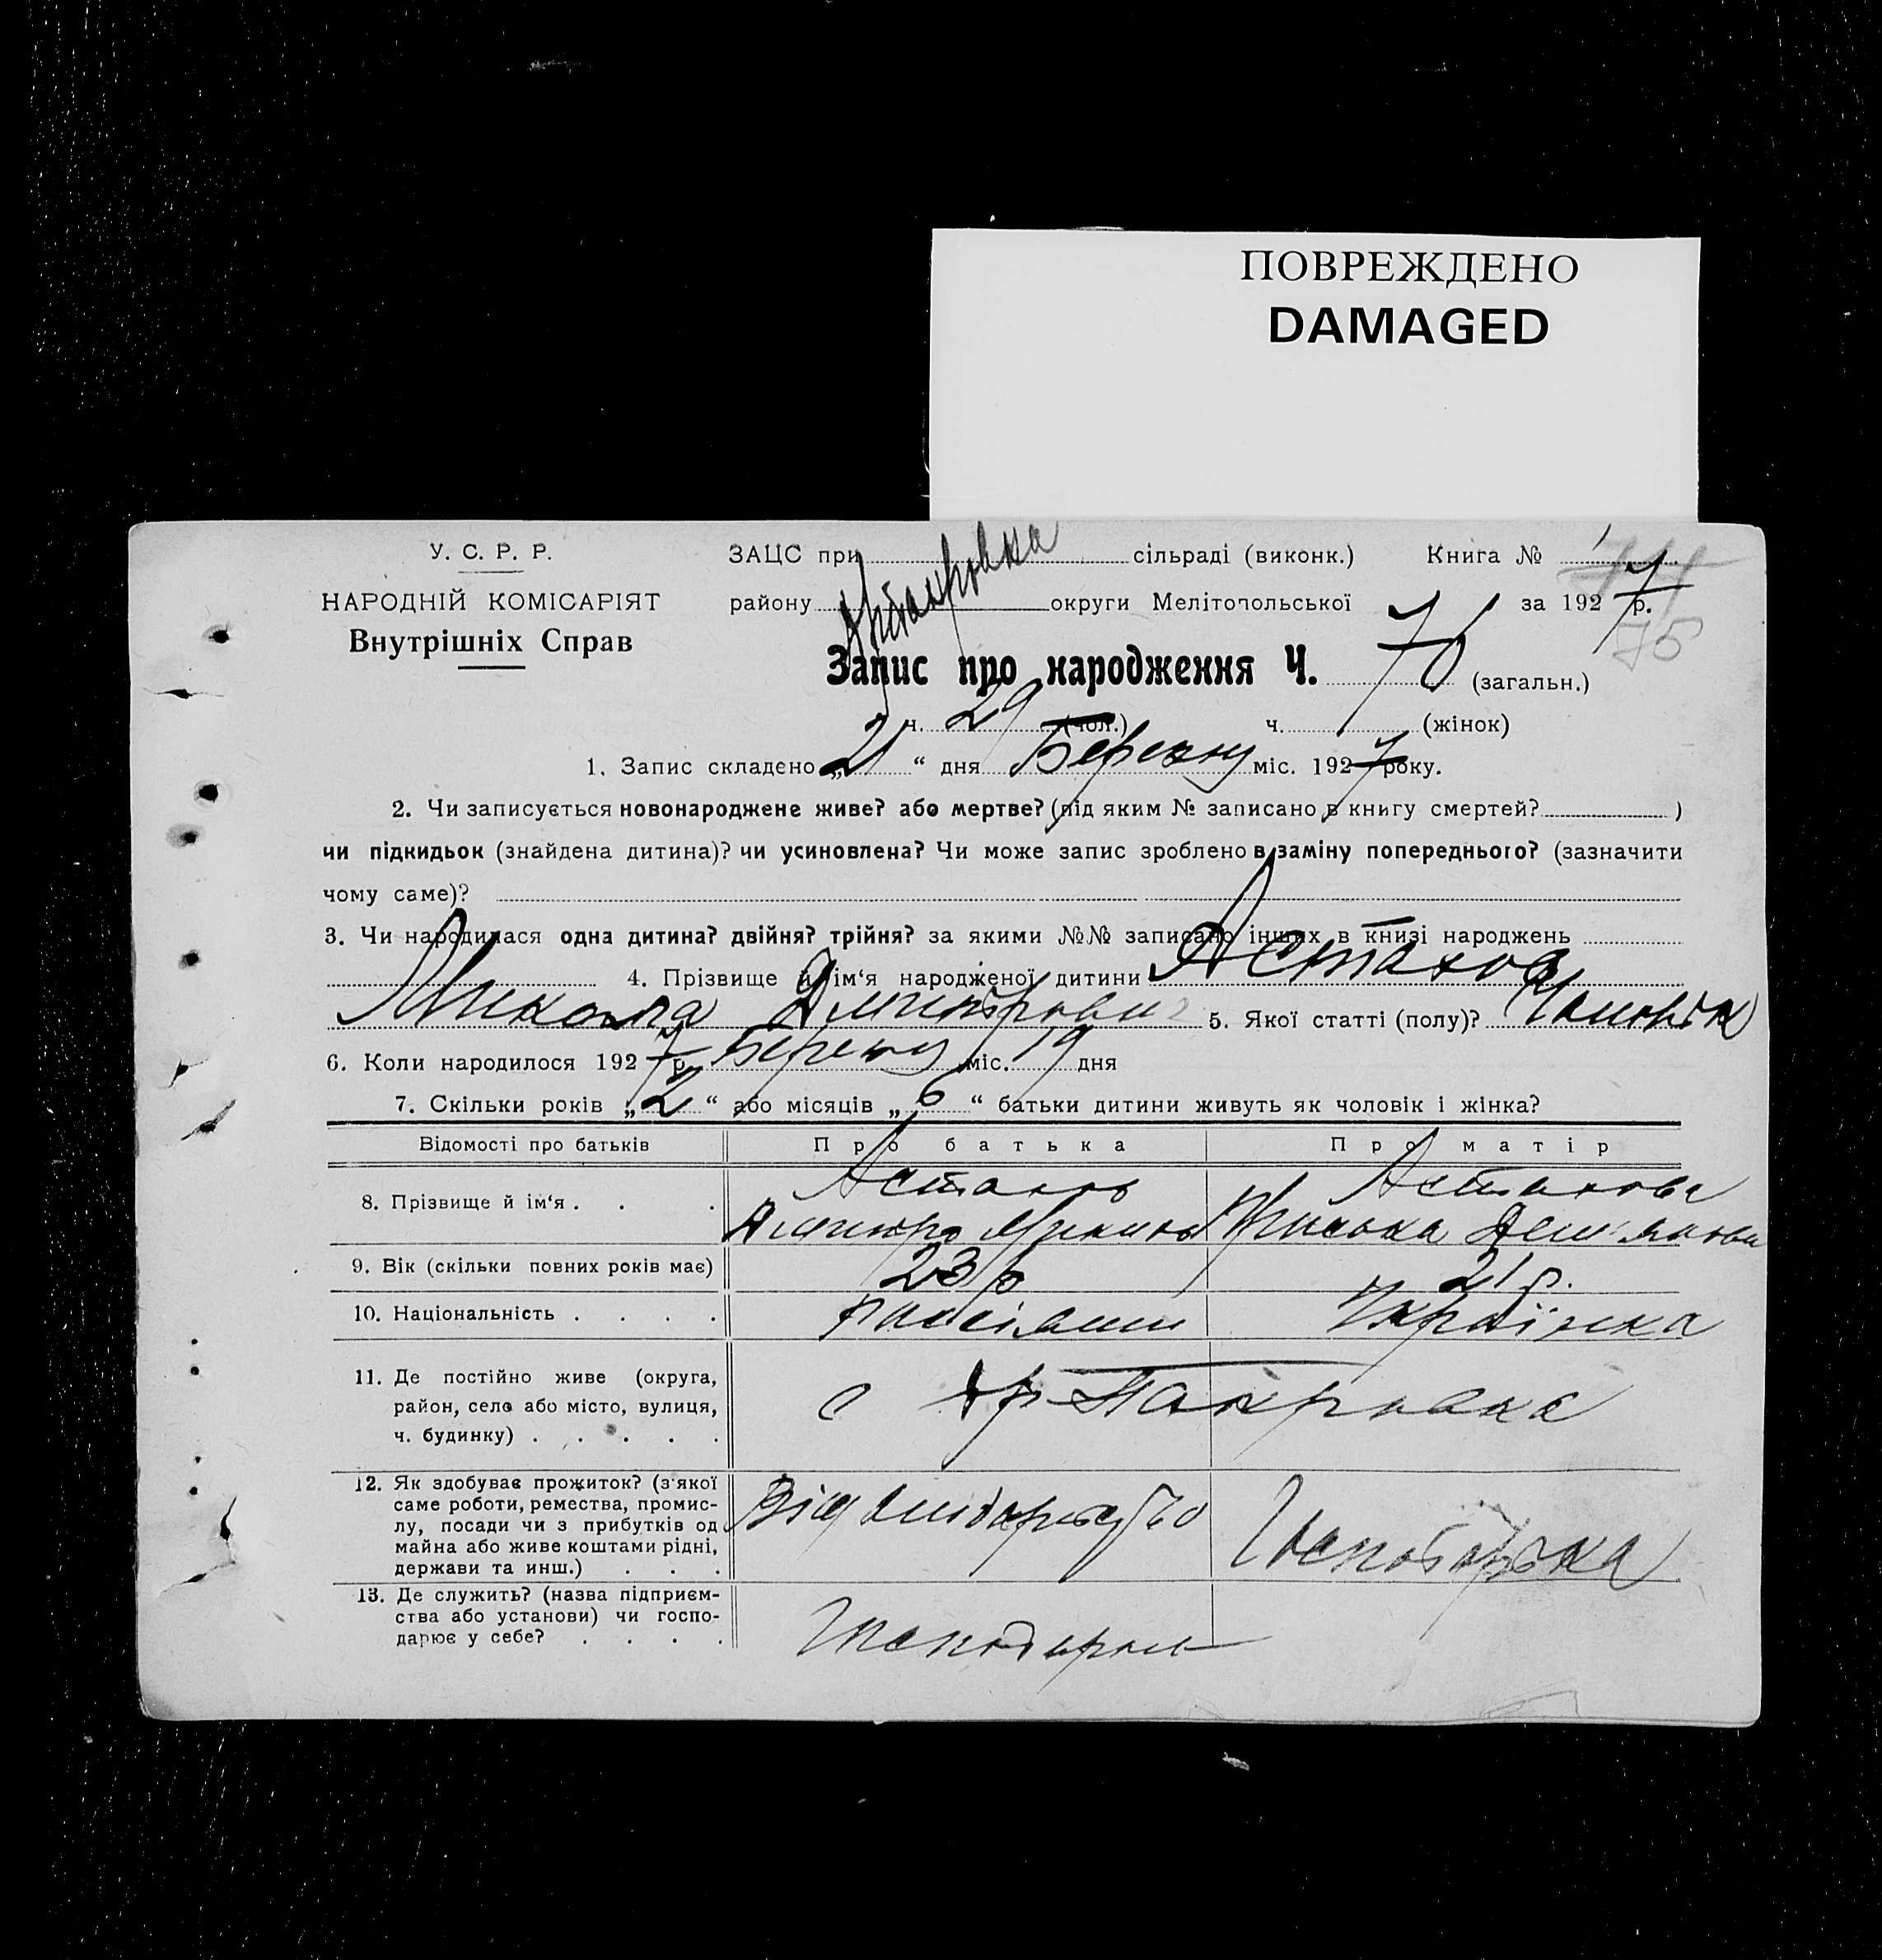 ПОВРЕЖДЕНО
DAMAGED
У. С. Р. Р.
НАРОДНІЙ КОМІСАРІЯТ
Внутрішніх Справ
ЗАЦС при сільраді (виконк.) Книга №
району округи Мелітопольської за 1927 р.
75
Запис про народження Ч. 70 (загальн.)
ч. 29 (чол.) ч. (жінок)
1. Запис складено „21“ дня Березня міс. 1927 року.
2. Чи записується новонароджене живе? або мертве? (під яким № записано в книгу смертей? )
чи підкидьок (знайдена дитина)? чи усиновлена? Чи може запис зроблено в заміну попереднього? (зазначити
чому саме)?
3. Чи народилася одна дитина? двійня? трійня? за якими №№ записано інших в книзі народжень
4. Прізвище й ім‘я народженої дитини Астахов
Микола Дмитрович 5. Якої статті (полу)? Чоловік
6. Коли народилося 1927 р. Березня міс. 19 дня
7. Скільки років „2“ або місяців „6“ батьки дитини живуть як чоловік і жінка?
Відомості про батьків Про батька Про матір
8. Прізвище й ім‘я . . . Астахов Астахова
Дмитро
9. Вік (скільки повних років має) 23 р 21 р.
10. Національність . . . . Українка
11. Де постійно живе (округа,
район, село або місто, вулиця,
ч. будинку) . . . . .
с
12. Як здобуває прожиток? (з‘якої
саме роботи, ремества, промис-
лу, посади чи з прибутків од
майна або живе коштами рідні,
держави та инш.) . . .
Від
13. Де служить? (назва підприєм-
ства або установи) чи госпо-
дарює у себе? . . . .